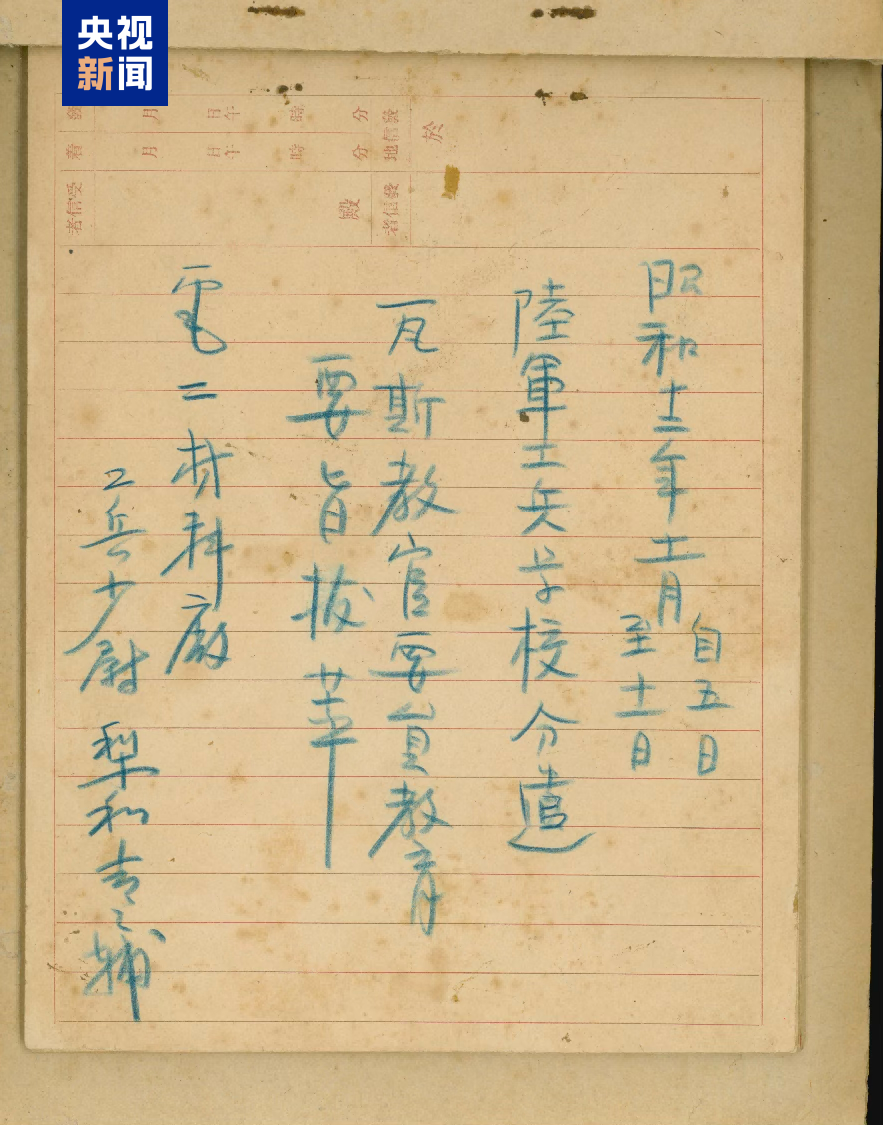 央视
新闻
發 月 日午 時 分 發信地 於
着 月 日午 時 分 發信者
受信者 殿
昭和十二年十一月 自五日
至十一日
陸軍工兵学校分遣
瓦斯教官要員教育
要旨抜萃
電二材料廠
工兵少尉 梨和 輔